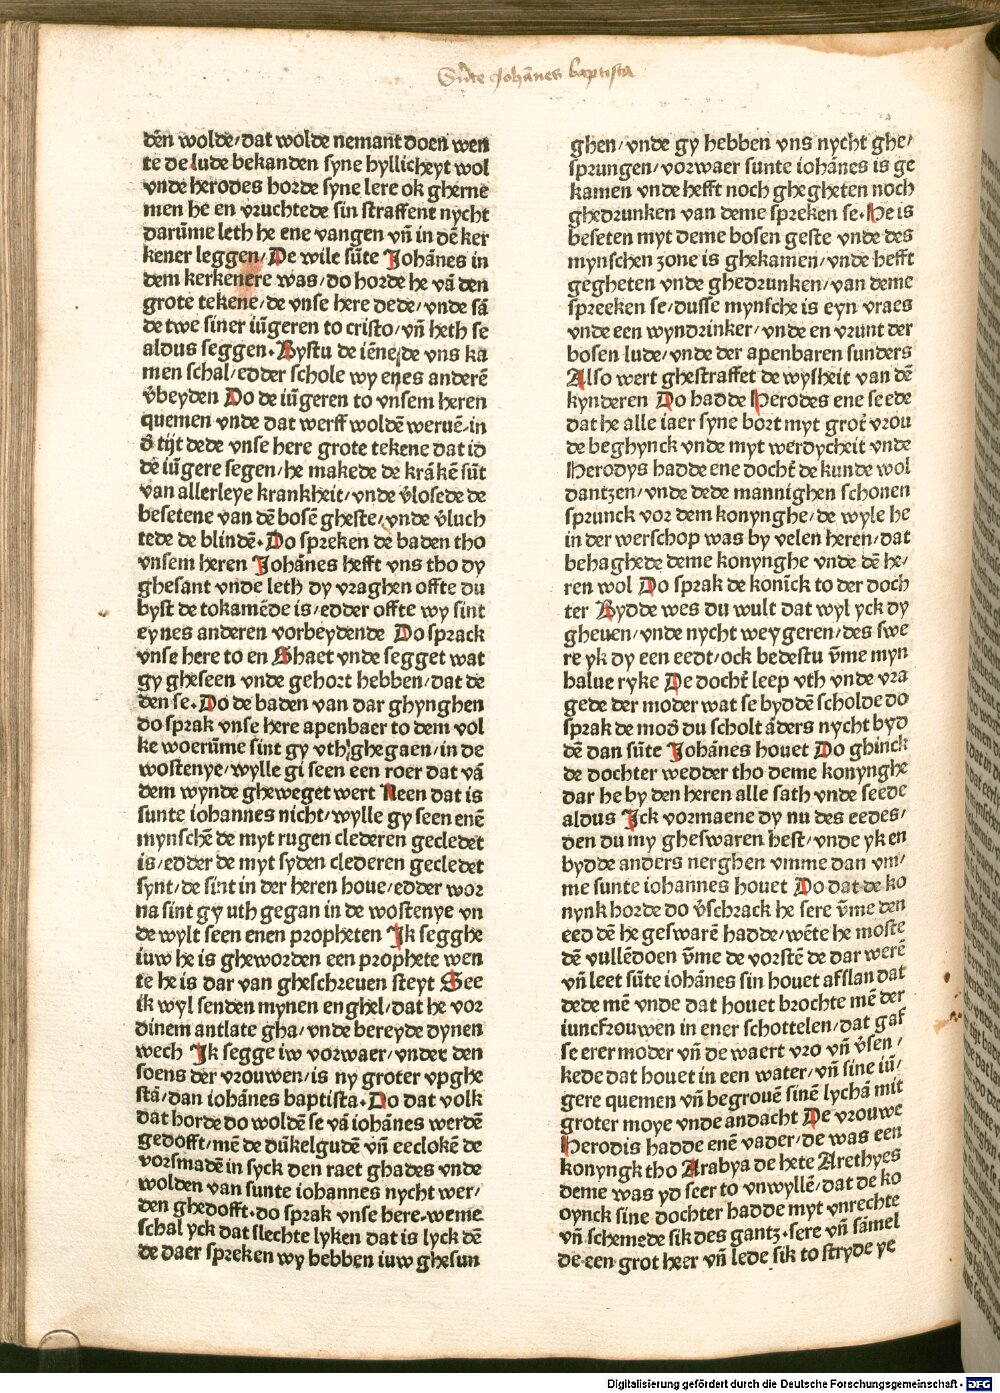 Sũte Johãnes baptista
den wolde/dat wolde nemant doen wen
te de lude bekanden syne hyllicheyt wol
vnde herodes horde syne lere ok gherne
men he en vruchtede sin straffent nycht
darũme leth he ene vangen vñ in dẽ ker
kener leggen/De wile sũte Johãnes in
dem kerkenere was/do horde he vã den
grote tekene/de vnse here dede/vnde sã
de twe siner iũgeren to cristo/vñ heth se
aldus seggen. Bystu de iẽne/de vns ka
men schal/edder schole wy enes anderẽ
v̄beyden Do de iũgeren to vnsem heren
quemen vnde dat werff woldẽ weruẽ-in
d̄ tijt dede vnse here grote tekene dat id
dẽ iũgere segen/he makede de krãkẽ sũt
van allerleye krankheit/vnde v̄losede de
besetene van dẽ bosẽ gheste/vnde v̄luch
tede de blindẽ. Do spreken de baden tho
vnsem heren Johãnes hefft vns tho dy
ghesant vnde leth dy vraghen offte du
byst de tokamẽde is/edder offte wy sint
eynes anderen vorbeydende Do sprack
vnse here to en Ghaet vnde segget wat
gy gheseen vnde gehort hebben/dat de
den se. Do de baden van dar ghynghen
do sprak vnse here apenbaer to dem vol
ke woerũme sint gy vth ghegaen/in de
wostenye/wylle gi seen een roer dat vã
dem wynde gheweget wert Neen dat is
sunte iohannes nicht/wylle gy seen enẽ
mynschẽ de myt rugen clederen gecledet
is/edder de myt syden clederen gecledet
synt/de sint in der heren houe/edder wor
na sint gy uth gegan in de wostenye vn
de wylt seen enen propheten Jk segghe
iuw he is gheworden een prophete wen
te he is dar van gheschreuen steyt See
ik wyl senden mynen enghel/dat he vor
dinem antlate gha/vnde bereyde dynen
wech Jk segge iw vorwaer/vnder den
soens der vrouwen/is ny groter vpghe
stã/dan iohãnes baptista. Do dat volk
dat horde do woldẽ se vã iohãnes werdẽ
gedofft/mẽ de dũkelgudẽ vñ eeclokẽ de
vorsmadẽ in syck den raet ghades vnde
wolden van sunte iohannes nycht wer/
den ghedofft.do sprak vnse here.weme
schal yck dat slechte lyken dat is lyck dẽ
de daer spreken wy hebben iuw ghesun
ghen/vnde gy hebben vns nycht ghe/
sprungen/vorwaer sunte iohãnes is ge
kamen vnde hefft noch ghegheten noch
ghedrunken van deme spreken se. He is
beseten myt deme bosen geste vnde des
mynschen zone is ghekamen/vnde hefft
gegheten vnde ghedrunken/van deme
spreeken se/dusse mynsche is eyn vraes
vnde een wyndrinker/vnde en vrunt der
bosen lude/vnde der apenbaren sunders
Also wert ghestraffet de wysheit van dẽ
kynderen Do hadde Herodes ene seede
dat he alle iaer syne bort myt grot̄ vrou
de beghynck vnde myt werdycheit vnde
Herodys hadde ene docht̄ de kunde wol
dantzen/vnde dede mannighen schonen
sprunck vor dem konynghe/de wyle he
in der werschop was by velen heren/dat
behaghede deme konynghe vnde dẽ he/
ren wol Do sprak de konĩck to der doch
ter Bydde wes du wult dat wyl yck dy
gheuen/vnde nycht weygeren/des swe
re yk dy een eedt/ock bedestu v̄me myn
halue ryke De docht̄ leep vth vnde vra
gede der moder wat se byddẽ scholde do
sprak de mod̄ du scholt ãders nycht byd
dẽ dan sũte Johãnes houet Do ghinck
de dochter wedder tho deme konynghe
dar he by den heren alle sath vnde seede
aldus Jck vormaene dy nu des eedes/
den du my gheswaren hest/vnde yk en
bydde anders nerghen vmme dan vm/
me sunte iohannes houet Do dat de ko
nynk horde do v̄schrack he sere v̄me den
eed dẽ he geswarẽ hadde/wẽte he moste
dẽ vullẽdoen v̄me de vorstẽ de dar werẽ
vñ leet sũte iohãnes sin houet afslan dat
dede mẽ vnde dat houet brochte mẽ der
iuncfrouwen in ener schottelen/dat gaf
se erer moder vñ de waert vro vñ v̄sen/
kede dat houet in een water/vñ sine iũ/
gere quemen vñ begrouẽ sinẽ lychã mit
groter moye vnde andacht De vrouwe
Herodis hadde enẽ vader/de was een
konyngk tho Arabya de hete Arethyes
deme was yd seer to vnwyllẽ/dat de ko
oynck sine dochter hadde myt vnrechte
vñ schemede sik des gantz.sere vñ sãmel
de een grot heer vñ lede sik to stryde ye
Digitalisierung gefördert durch die Deutsche Forschungsgemeinschaft - DFG